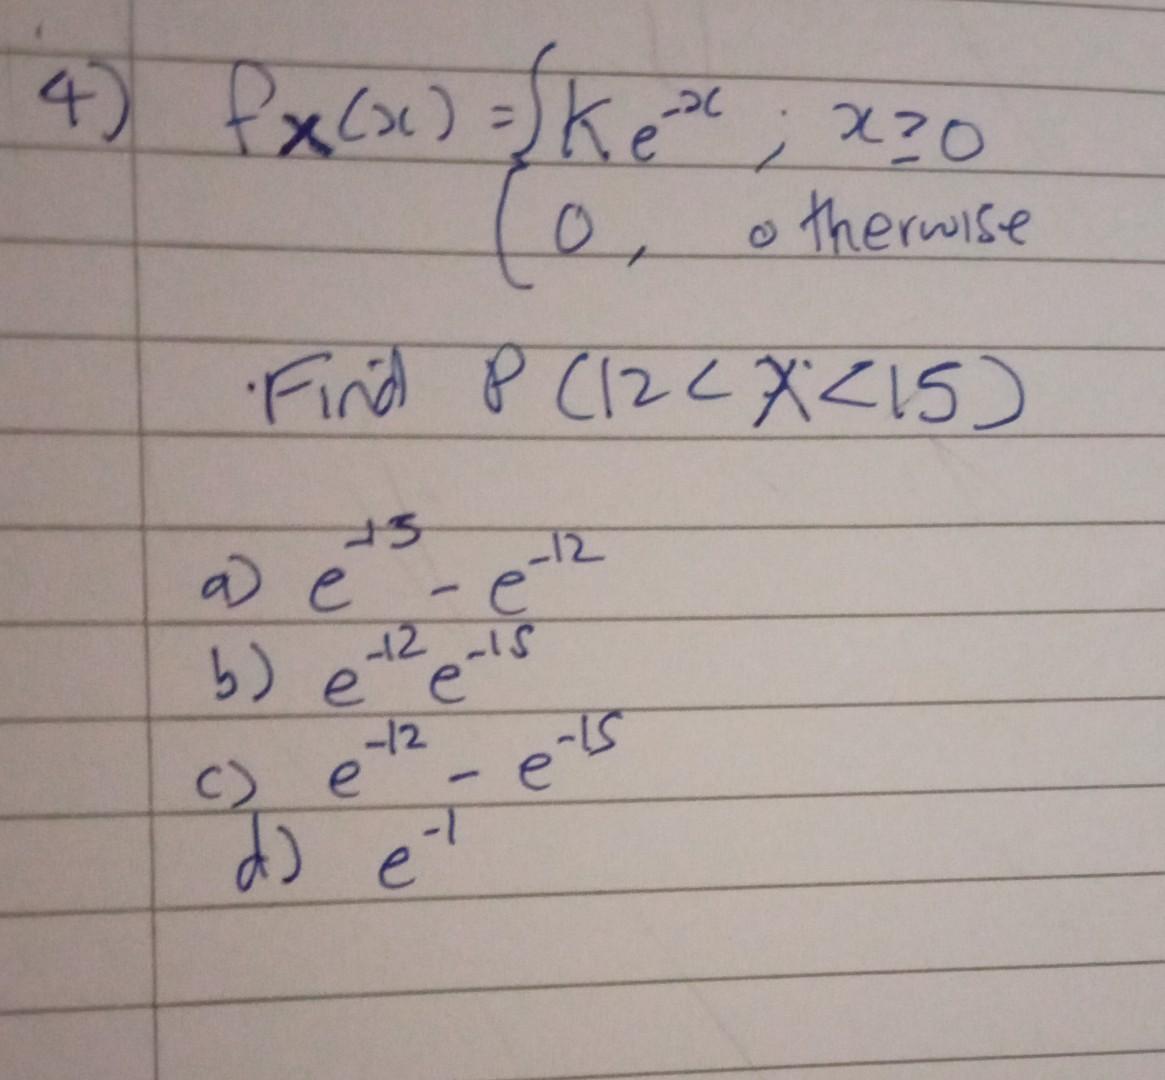 4) fx(x) = { Ke^-x ; x ≥ 0
0, otherwise
Find P(12 < X < 15)
a) e^-15 - e^-12
b) e^-12 e^-15
c) e^-12 - e^-15
d) e^-1